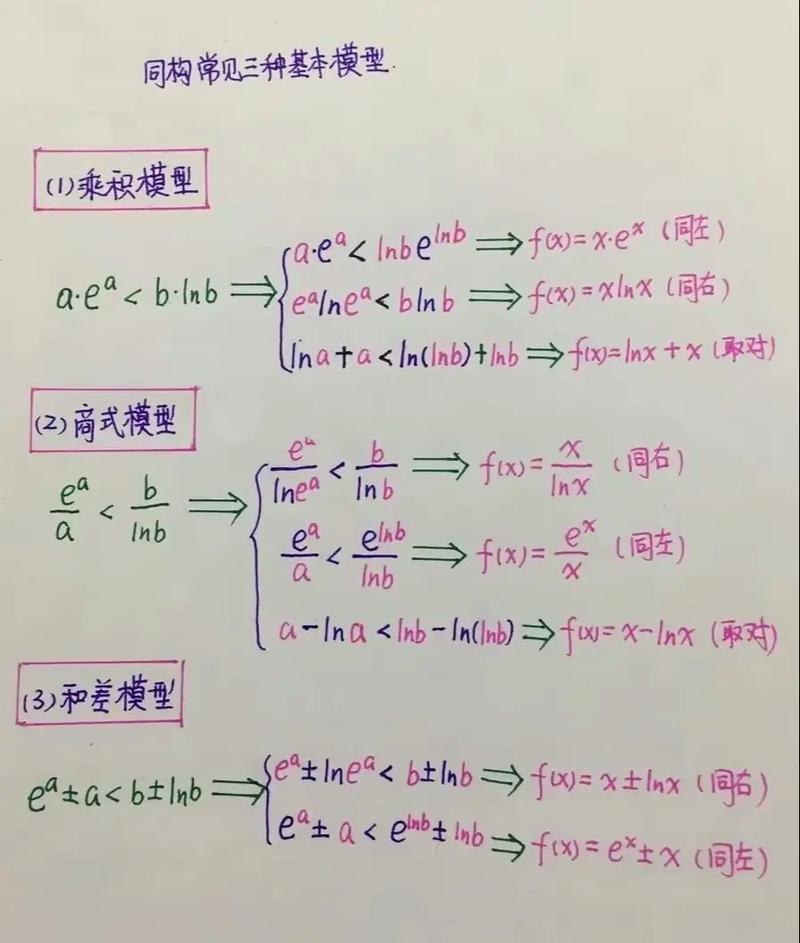 同构常见三种基本模型.
(1)乘积模型
a·eᵃ < b·lnb ⟹ { a·eᵃ < lnb e^{lnb} ⟹ f(x)=x·eˣ (同左)
eᵃlneᵃ < blnb ⟹ f(x)=xlnx (同右)
lna+a < ln(lnb)+lnb ⟹ f(x)=lnx+x (取对)
(2)商式模型
eᵃ/a < b/lnb ⟹ { eᵃ/lneᵃ < b/lnb ⟹ f(x)=x/lnx (同右)
eᵃ/a < e^{lnb}/lnb ⟹ f(x)=eˣ/x (同左)
a-lna < lnb-ln(lnb) ⟹ f(x)=x-lnx (取对)
(3)和差模型
eᵃ±a < b±lnb ⟹ { eᵃ±lneᵃ < b±lnb ⟹ f(x)=x±lnx (同右)
eᵃ±a < e^{lnb}±lnb ⟹ f(x)=eˣ±x (同左)